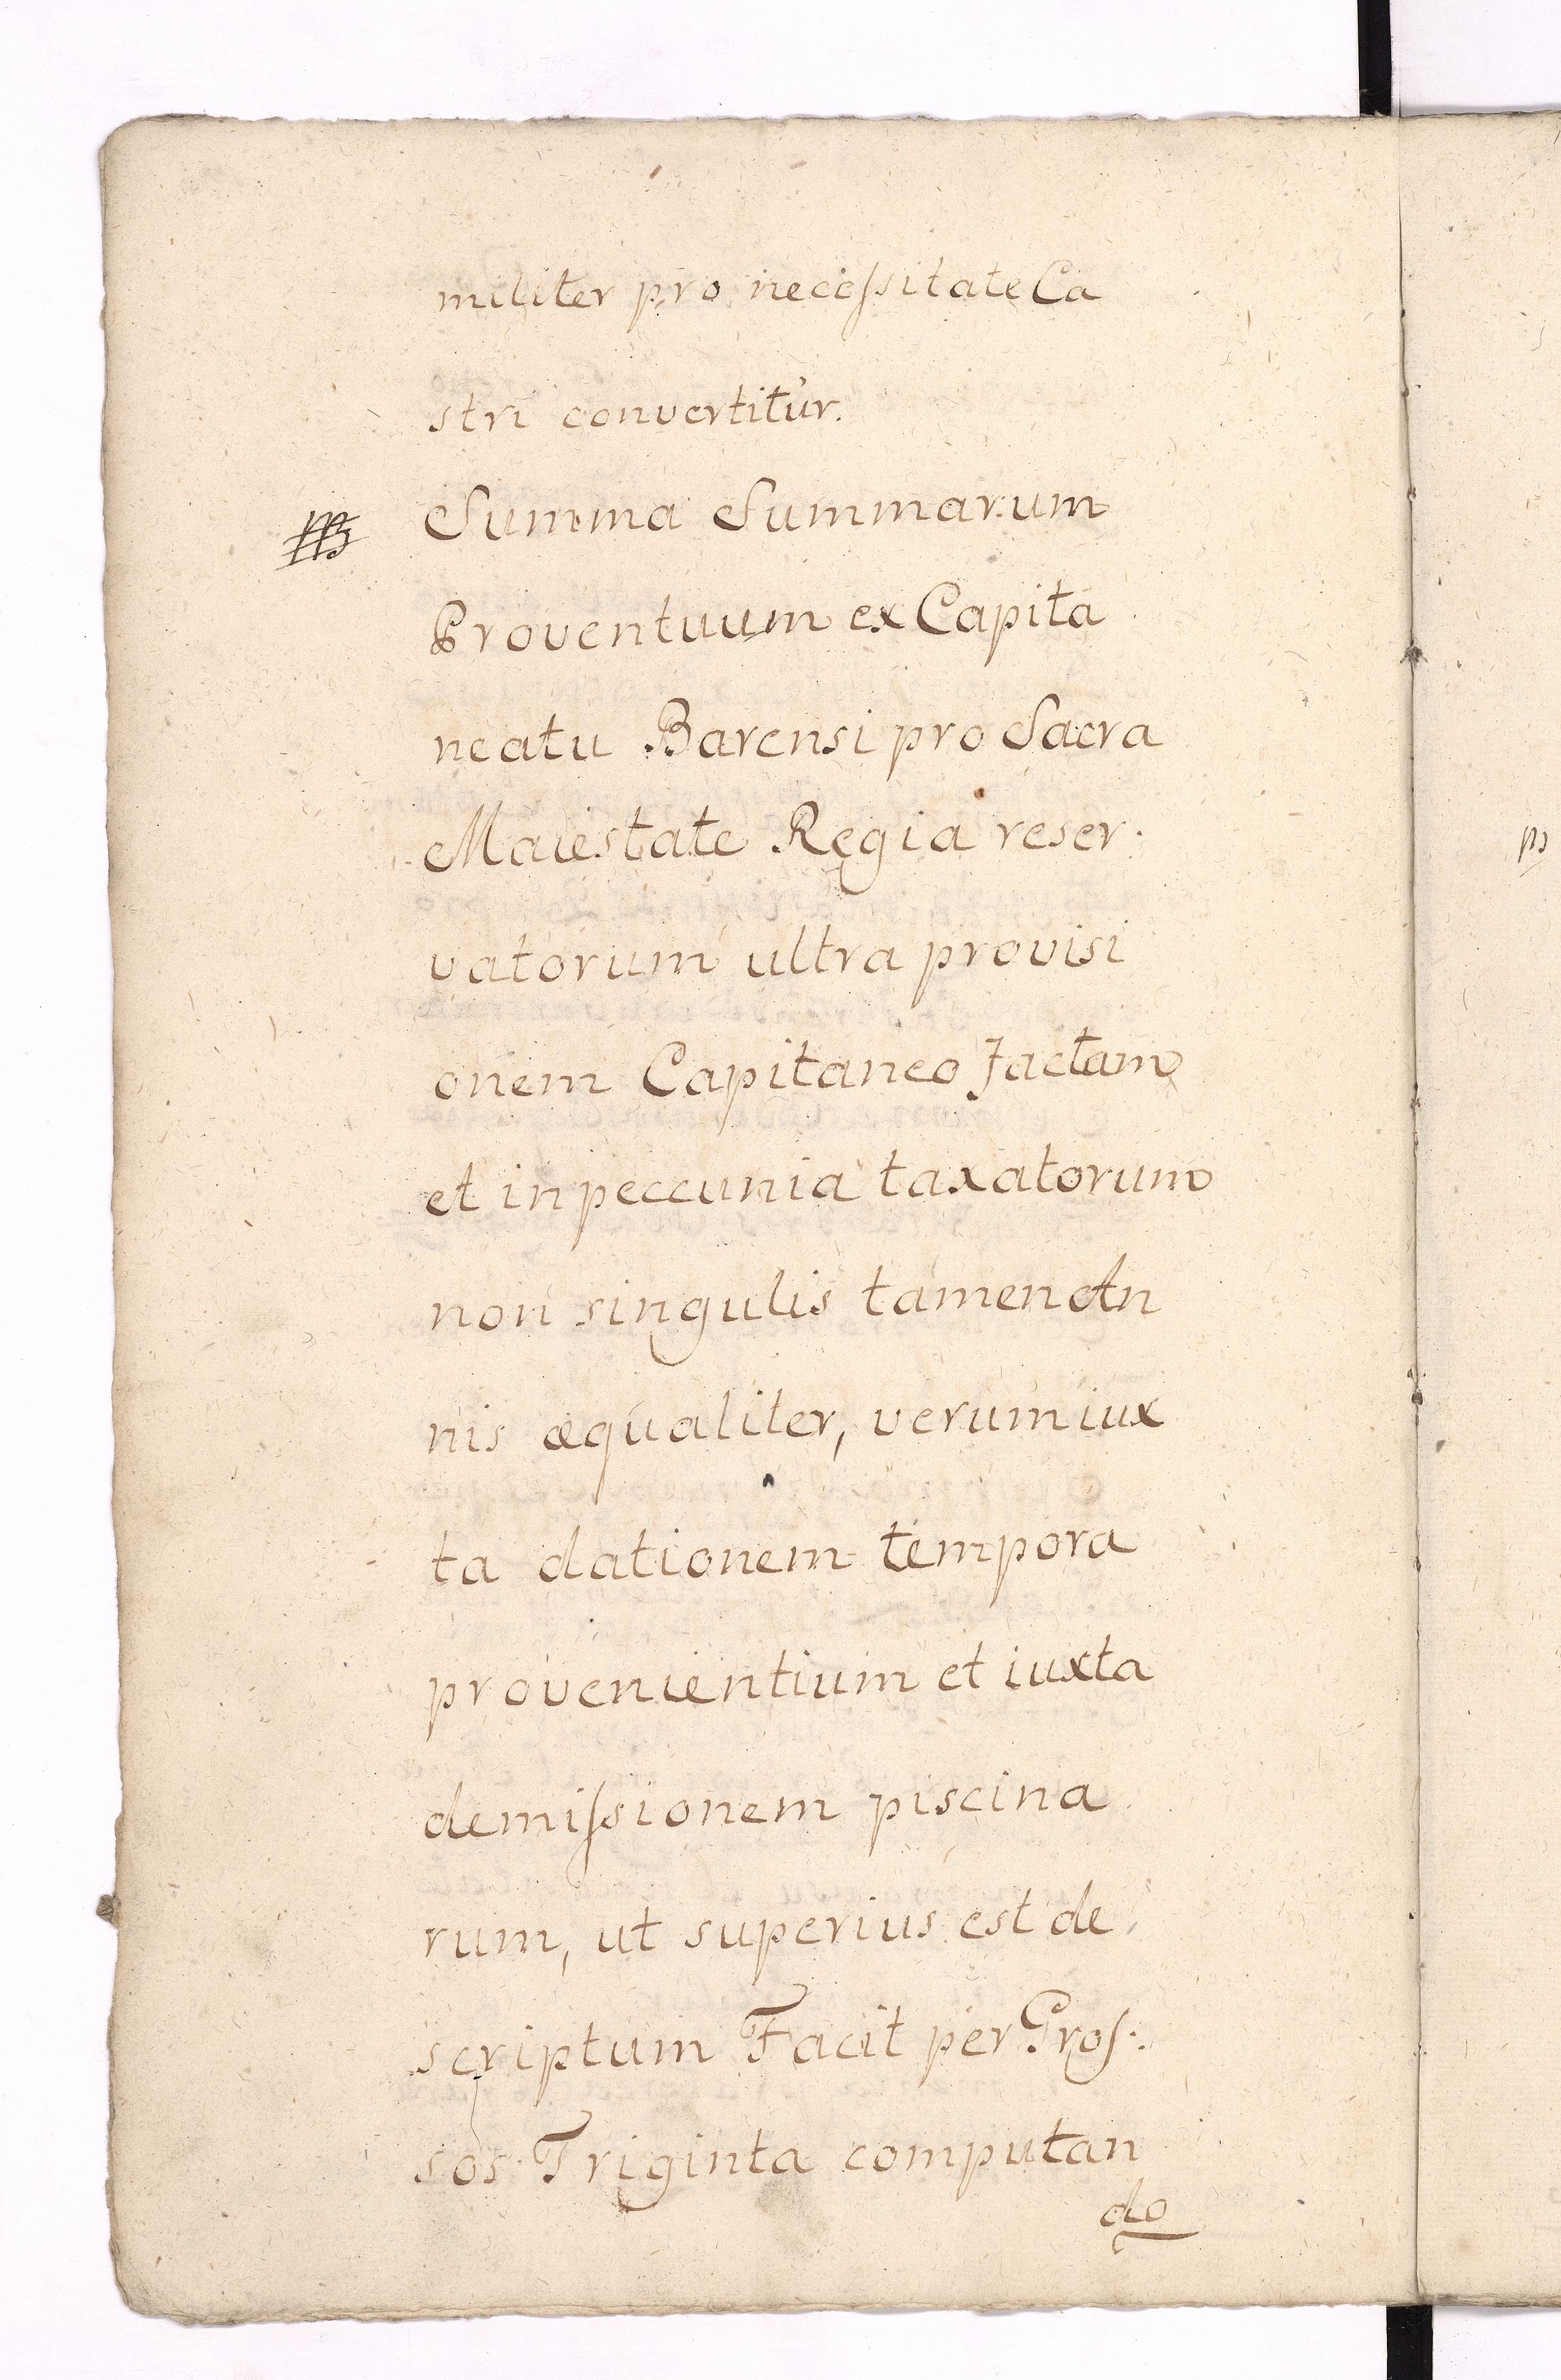 militer pro necessitate Ca
stri convertitur.
Summa Summarum
Proventuum ex Capita
neatu Barensi pro Sacra
Maiestate Regia reser
vatorum ultra provisi
onem Capitaneo factam
et in peccunia taxatorum
non singulis tamen An
nis æqualiter, verum iux
ta dationem tempora
provenientium et iuxta
demissionem piscina
rum, ut superius est de
scriptum Facit per Gros:
sos Triginta computan
do